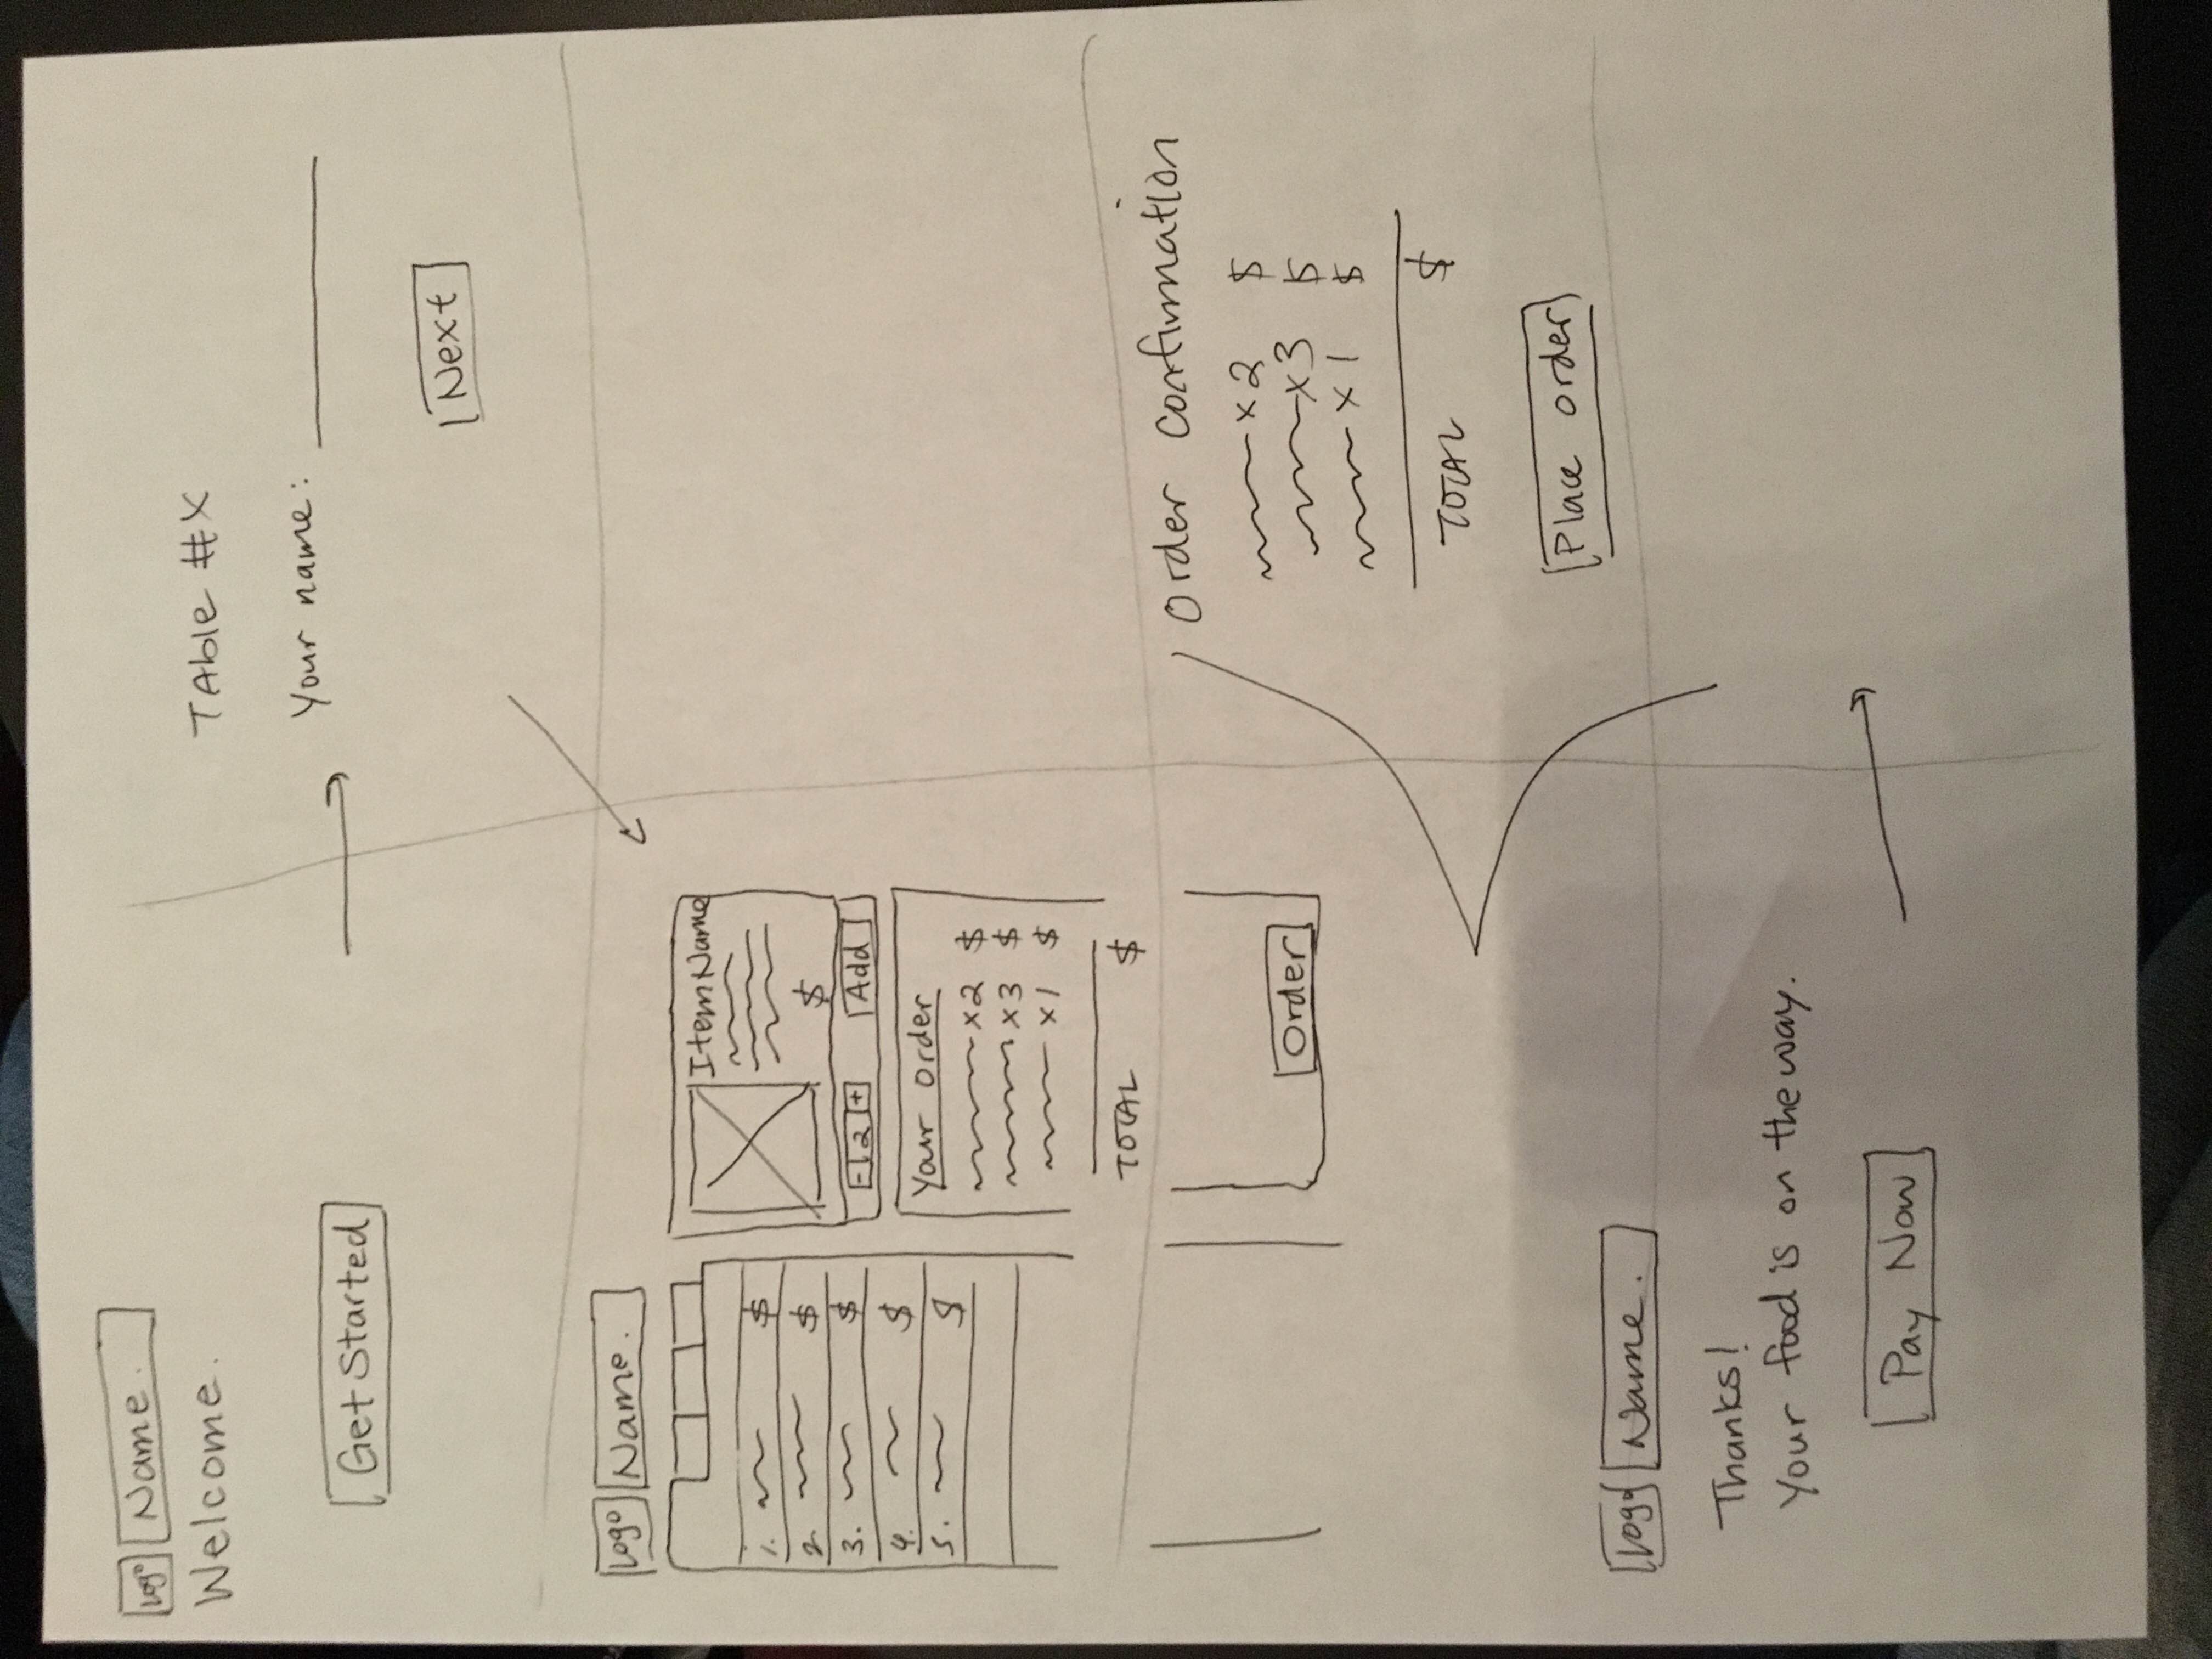 Logo Name.
Welcome.
Get Started
TAble #X
Your name:
Next
Logo Name.
1. $
2. $
3. $
4. $
5. $
Item Name
$
- 2 +
Add
Your order
x2 $
x3 $
x1 $
TOTAL $
Order
Order Confirmation
x2 $
x3 $
x1 $
TOTAL $
Place order
Logo Name.
Thanks!
Your food is on the way.
Pay Now